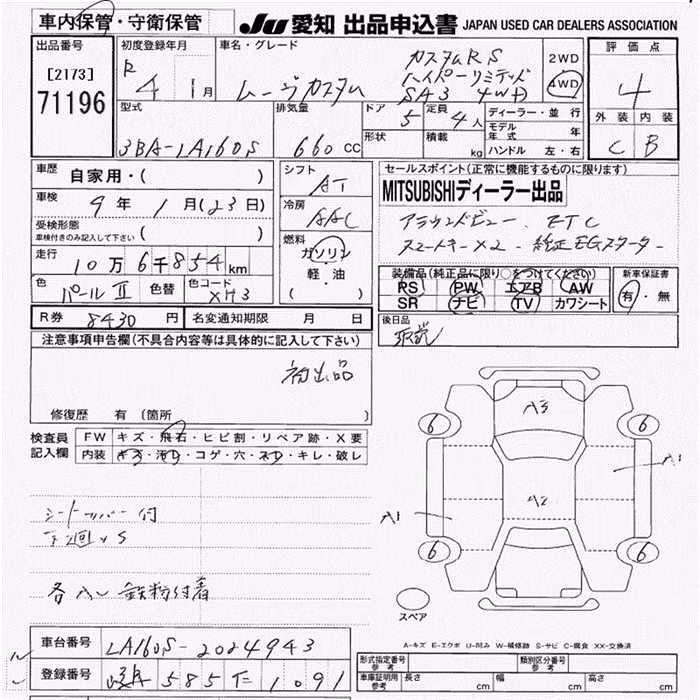 車内保管・守衛保管
JU 愛知 出品申込書 JAPAN USED CAR DEALERS ASSOCIATION
出品番号
[2173]
71196
初度登録年月
R 4年 1月
車名・グレード
ムーヴカスタム
カスタムRS
ハイパーリミテッド
SA3 4WD
2WD
4WD
評価点
4
外装 内装
C B
型式
3BA-LA160S
排気量
660 CC
ドア
5
定員
4人
形状
積載
kg
ディーラー・並行
モデル年式 年
ハンドル 左・右
車歴
自家用・( )
車検
4年 1月(23日)
受検形態
車検付きのみ記入して下さい ( )
走行
10万6千854km
色
パールⅡ
色替
色コード
XH3
シフト
AT
冷房
AAC
燃料
ガソリン
軽・油
( )
セールスポイント(正常に機能するものに限ります)
MITSUBISHIディーラー出品
アラウンドビュー ETC
スマートキー×2 純正EGスターター
装備品(純正品に限り○をつけてください)
RS PW エアB AW
SR ナビ TV カワシート
新車保証書
有・無
R券 8430円
名変通知期限 月 日
後日品
取説
注意事項申告欄(不具合内容等は具体的に記入して下さい)
初出品
修復歴 有(箇所 )
検査員
記入欄
FW キズ・飛石・ヒビ割・リペア跡・X要
内装 キズ・汚れ・コゲ・穴・ヌレ・キレ・破レ
シートカバー付
下廻りS
各ハゲ 鉄粉付着
A3
6 6
A1
A2
A1
6 6
スペア
A-キズ E-エクボ U-凹み W-補修跡 S-サビ C-腐食 XX-交換済
車台番号
LA160S-2024943
登録番号
岐阜 585 モ 1091
形式指定番号
参考
類別区分番号
参考
車庫証明用
参考
長さ cm 幅 cm 高さ cm